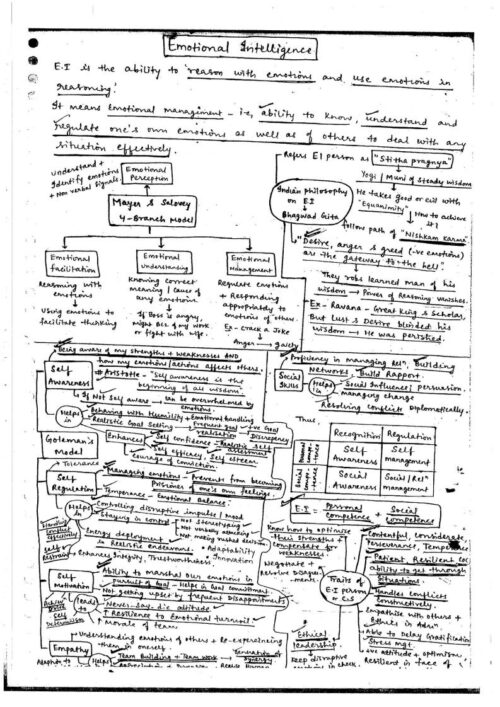 Emotional Intelligence
E.I is the ability to 'reason with emotions and use emotions in
reasoning'.
It means Emotional management - i.e, ability to know, understand and
regulate one's own emotions as well as of others to deal with any
situation effectively.
Understand +
Identify emotions
+ Non verbal signals.
Emotional
Perception
Mayer & Salovey
4-Branch Model
Emotional
facilitation
Reasoning with
emotions
Using emotions to
facilitate thinking
Emotional
Understanding
Knowing correct
meaning / cause of
any emotion
If Boss is angry,
might BCZ of my work
or fight with wife.
Emotional
Management
Regulate emotions
+ Responding
appropriately to
emotions of other.
Ex - crack a Joke
Anger → gaiety
Refers EI person as "Stitha pragnya"
Yogi / Muni of Steady wisdom
Indian Philosophy
on EI
Bhagwad Gita
He takes good or evil with
"Equanimity"
How to achieve
it?
follow path of "Nishkam Karma"
"Desire, anger & greed (-ve emotions)
are the gateway to the hell".
They robs learned man of his
wisdom → Power of Reasoning vanishes.
Ex - Ravana - Great King & Scholar,
But Lust & Desire blinded his
wisdom → He was perished.
Goleman's
Model
Self
Awareness
Being aware of my strengths & weaknesses AND
how my emotions/actions affects others.
Aristotle - "Self awareness is the
beginning of all wisdom"
If Not Self aware → can be overwhelmed by
emotions.
Helps in
Behaving with Humility + Emotional handling
Realistic Goal Setting
Prevent Goal
realisation
Discrepancy
Enhances
Self confidence - Realistic self
assessment
Self efficacy, Self esteem.
courage of conviction.
Self
Regulation
Tolerance
Managing emotions - Prevents from becoming
Prisoner of one's own feelings.
Temperance - Emotional Balance.
Helps
Controlling disruptive impulse / mood
Staying in control
Not stereotyping
Not making rushed decisions
Energy deployment
in Realistic endeavours.
Adaptability
Innovation
Enhances Integrity, Trustworthiness.
Self
Motivation
Ability to marshal our emotions in
pursuit of Goal - Helps in Goal commitment
Not getting upset by frequent disappointments
leads to
Never-say-die attitude
Resilience to Emotional turmoil
Morale of team.
Empathy
Understanding emotions of others & Re-experiencing
them in oneself.
Helps
Team Building + Team work → Generation of
Synergy
Social
Skills
Proficiency in managing Relⁿ, Building
Networks, Build Rapport.
Helps in
Social Influence / persuasion.
managing change
Resolving Conflicts Diplomatically.
Thus,
Recognition
Regulation
Personal
competence
Self
Awareness
Self
management
Social
competence
Social
Awareness
Social / Relⁿ
management
E.I = Personal
Competence
+
Social
Competence
Know how to optimise
their strengths &
compensate for
weaknesses
Negotiate &
Resolve Disagree-
ments.
Ethical
leadership.
Keep disruptive
in check.
Traits of
E.I person
Contentful, Considerate,
Perseverance, Temperance
Patient, Resilient
ability to get through
situations.
Handles conflicts
Constructively.
Empathise with others +
Able to Delay Gratification
Stress mgt.
+ve attitude + optimism
Resilient in face of